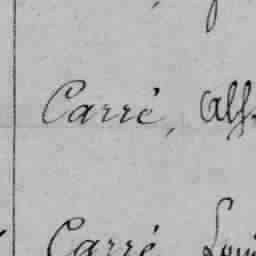 Carré, Alf.
Carré Loui